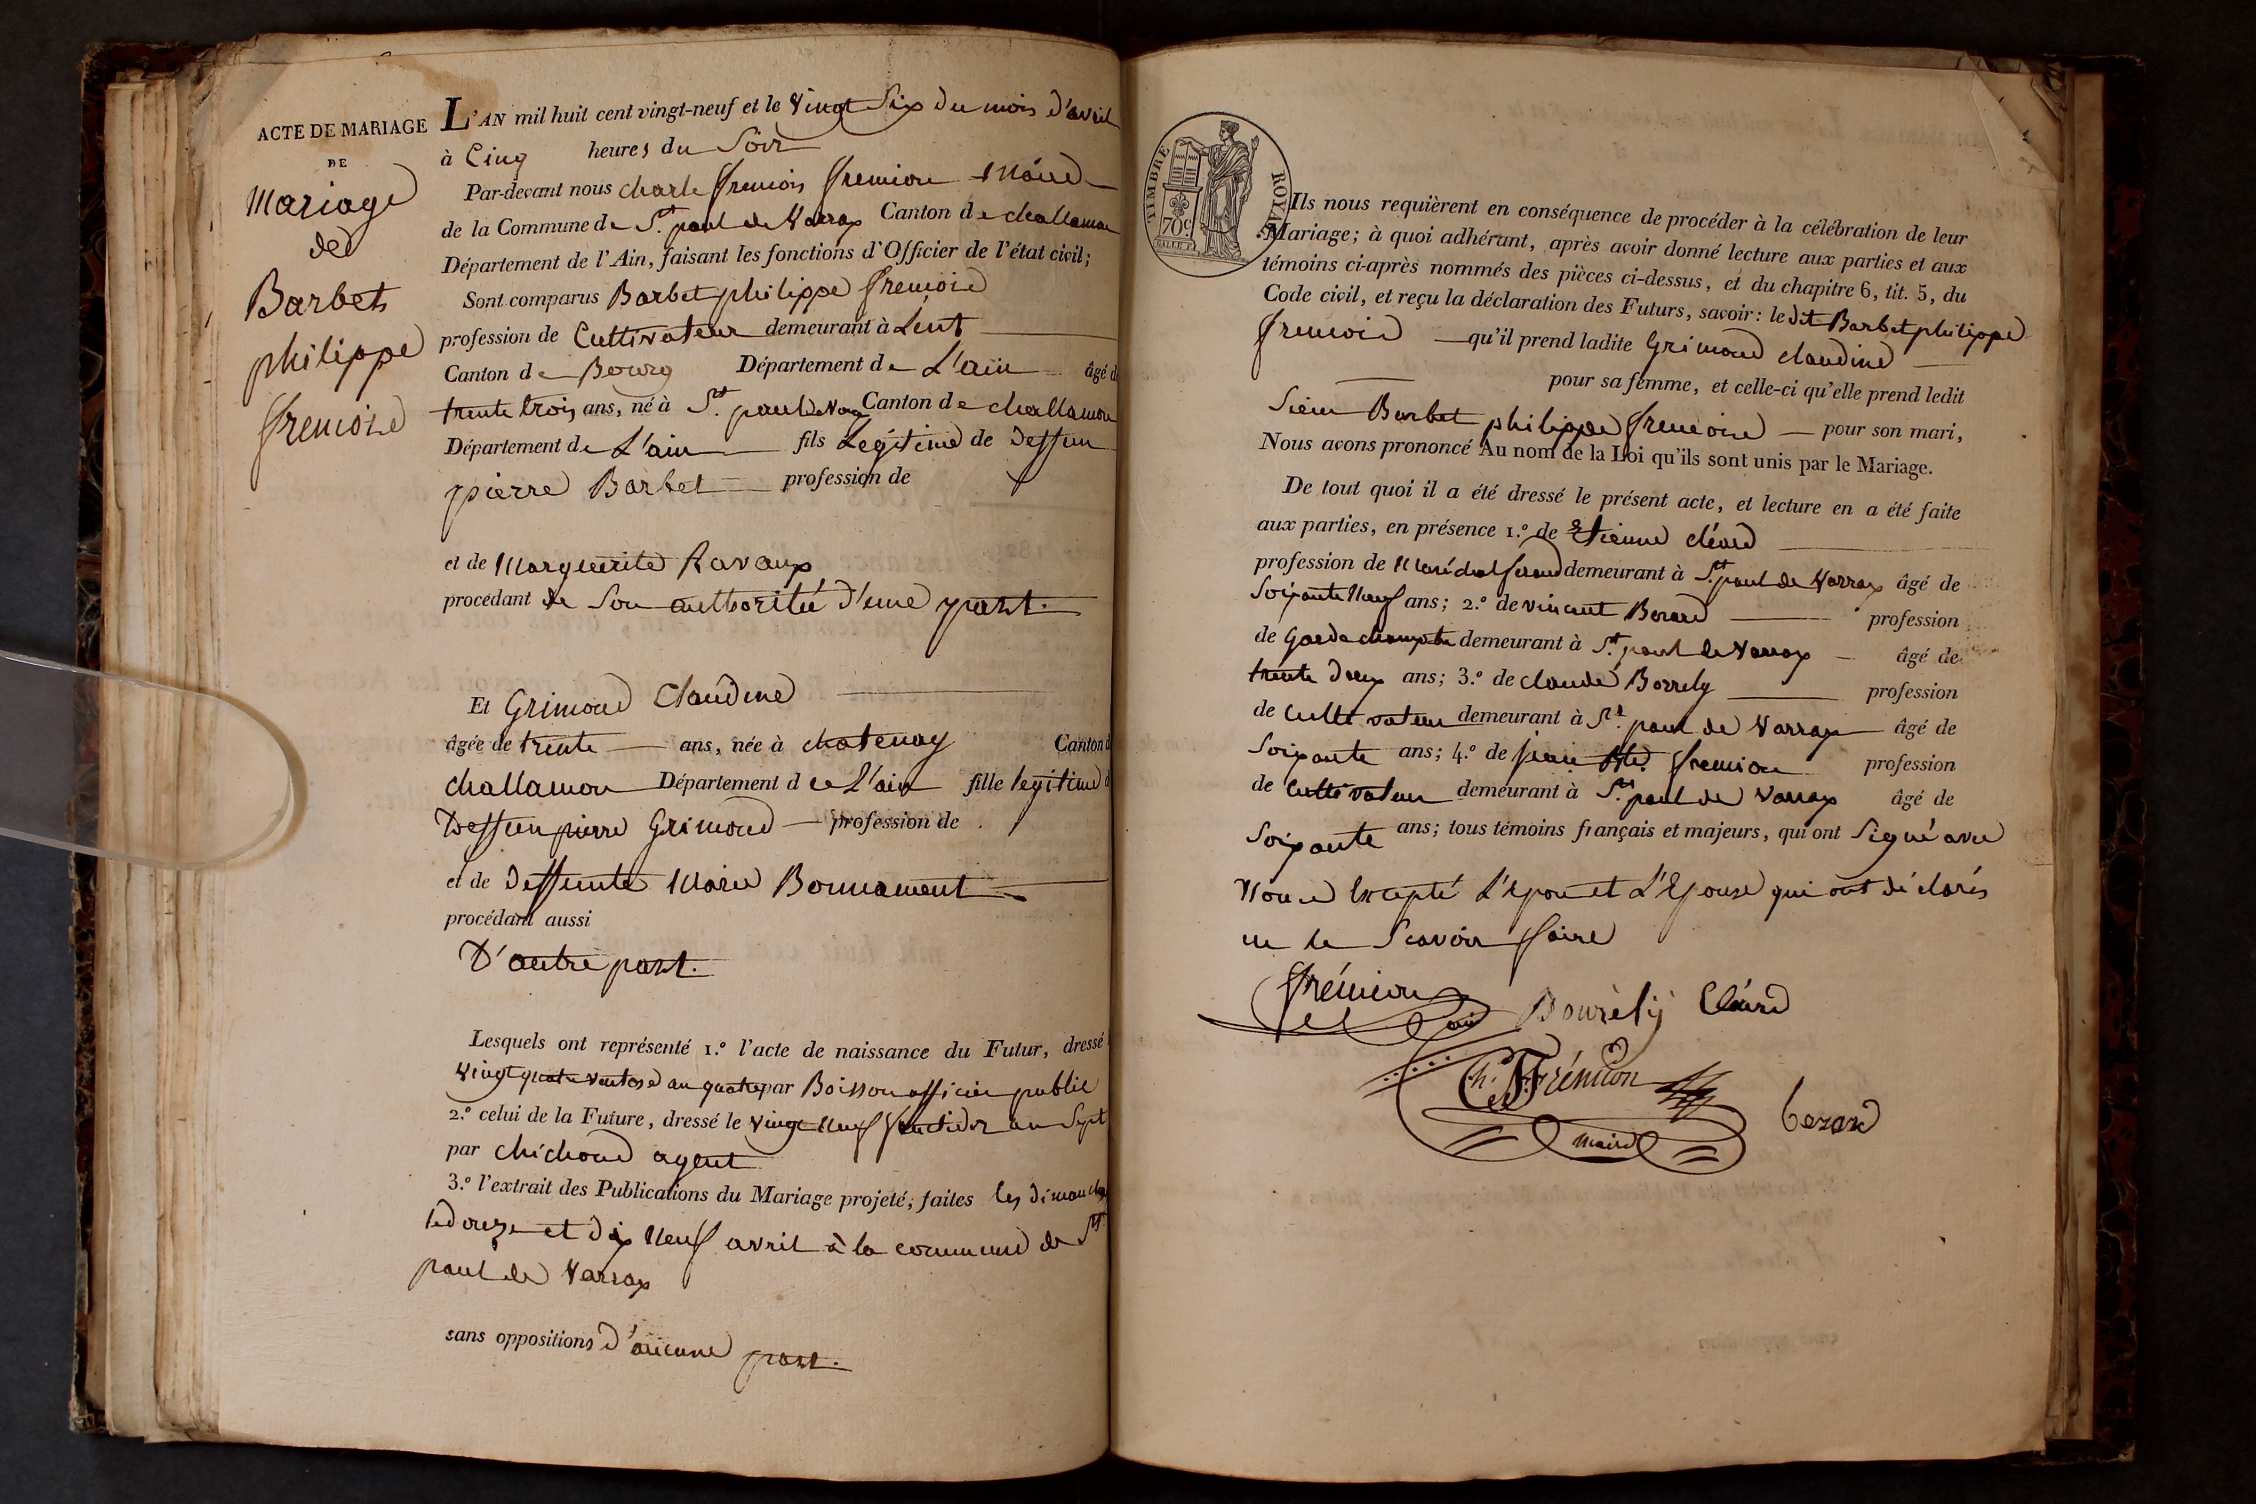 ACTE DE MARIAGE
DE
Mariage
de
Barbet
philippe
francois
L'AN mil huit cent vingt-neuf et le Vingt Six du mois d'avril
à Cinq heures du Soir
Par-devant nous charle francois fremion Maire
de la Commune de St. paul de Varrax Canton de challamon
Département de l'Ain, faisant les fonctions d'Officier de l'état civil;
Sont comparus Barbet philippe francois
profession de Cultivateur demeurant à Lent
Canton de Bourg Département de L'ain âgé d
trente trois ans, né à St. paul de Canton de challamon
Département de L'ain fils Legitime de deffun
pierre Barbet profession de
et de Marguerite Ravaux
procédant de Son authorité d'une part.
Et Grimoud Claudine
âgée de trente ans, née à chatenay Canton d
challamon Département de L'ain fille legitime d
Deffun pierre Grimoud profession de
et de deffunte Marie Bonnament
procédant aussi
D'autre part.
Lesquels ont représenté 1.º l'acte de naissance du Futur, dressé
Vingt quatre ventose an quatre par Boisson officier public
2.º celui de la Future, dressé le Vingt neuf an Sept
par chichoud agent
3.º l'extrait des Publications du Mariage projeté, faites les dimanche
le douze et dix neuf avril à la commune de St
paul de Varrax
sans oppositions d'aucune part.
TIMBRE ROYAL
70 c
Ils nous requièrent en conséquence de procéder à la célébration de leur
Mariage; à quoi adhérant, après avoir donné lecture aux parties et aux
témoins ci-après nommés des pièces ci-dessus, et du chapitre 6, tit. 5, du
Code civil, et reçu la déclaration des Futurs, savoir: ledit Barbet philippe
francois qu'il prend ladite Grimoud claudine
pour sa femme, et celle-ci qu'elle prend ledit
Sieur Barbet philippe francois pour son mari,
Nous avons prononcé Au nom de la Loi qu'ils sont unis par le Mariage.
De tout quoi il a été dressé le présent acte, et lecture en a été faite
aux parties, en présence 1.º de Etienne cléard
profession de Maréchal ferand demeurant à St. paul de Varrax âgé de
Soixante Neuf ans; 2.º de vincent Berard profession
de Garde champetre demeurant à St. paul de Varrax âgé de
trente deux ans; 3.º de claude Borrely profession
de Cultivateur demeurant à St. paul de Varrax âgé de
Soixante ans; 4.º de jean fremion profession
de Cultivateur demeurant à St. paul de Varrax âgé de
Soixante ans; tous témoins français et majeurs, qui ont Signé avec
Nous Excepté L'Epou et L'Epouse qui ont déclarés
ne le Scavoir faire
frémion Bourély Cléard
Ch. F. Frémion
maire
berard